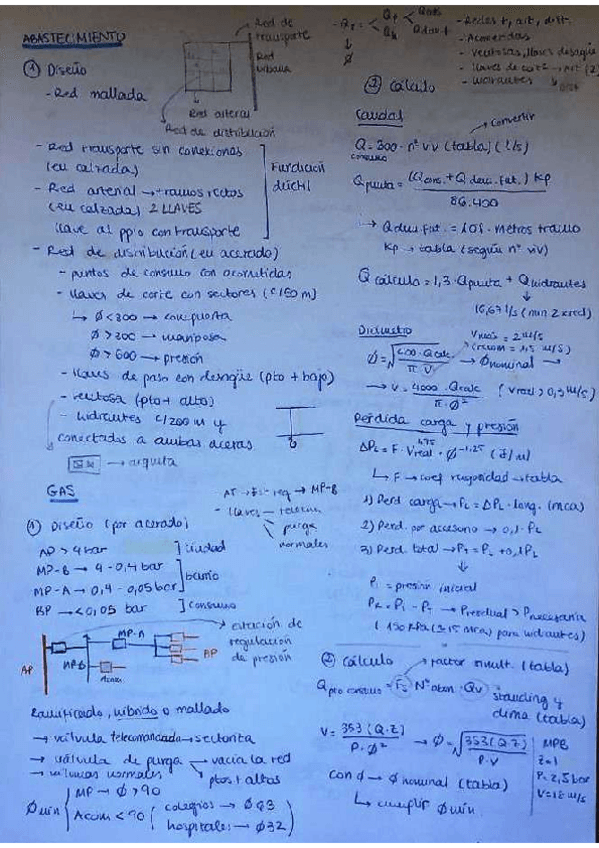 ABASTECIMIENTO
① Diseño
- Red mallada
Red de transporte
Red urbana
Red arterial
Red de distribución
- Red transporte sin conexiones
(en calzada)
- Red arterial → tramos rectos
(en calzada) 2 LLAVES
llave al ppio con transporte
Fundición dúctil
- Red de distribución (en acerado)
- puntos de consumo con acometidas
- llaves de corte con sectores (c/150 m)
↳ Ø<300 → compuerta
Ø>300 → mariposa
Ø>600 → presión
- llaves de paso con desagüe (pto + bajo)
- ventosa (pto + alto)
- hidrantes c/200 m y
conectados a ambas aceras
→ arqueta
GAS
→ MP-B
- llaves → 
purga
normales
① Diseño (por acerado)
AP > 4 bar ] ciudad
MP-B → 4 - 0,4 bar
MP-A → 0,4 - 0,05 bar ] barrio
BP → <0,05 bar ] consumo
estación de
regulación
de presión
AP
MP-B
MP-A
BP
Acom.
Ramificado, híbrido o mallado
→ válvula telecomandada → sectoriza
→ válvula de purga → vacía la red
→ válvulas normales ptos + altos
Ø mín { MP → Ø>90
Acom < 90 ( colegios → Ø63
hospitales → Ø32
- Redes t, art, dist.
- Acometidas
- ventosas, llaves desagüe
- llaves de corte, art (2)
- hidrantes
② Cálculo
Caudal
→ convertir
Q consumo = 300 · nº viv (tabla) (l/s)
Q punta = (Q cons. + Q dem. fut.) Kp / 86.400
→ Q dem. fut. = 101 · metros tramo
Kp → tabla (según nº viv)
Q cálculo = 1,3 · Q punta + Q hidrantes
16,67 l/s (mín 2 x red)
Diámetro
V max = 2 m/s
Ø = √(4000 · Q calc / π · V) → Ø nominal →
→ V = 4000 · Q calc / π · Ø² (V real > 0,5 m/s)
Pérdida carga y presión
ΔPL = F · V real^1,75 · Ø^-1,25 (J/m)
↳ F → coef rugosidad → tabla
1) Perd carga → PL = ΔPL · long. (mca)
2) Perd. por accesorio → 0,1 · PL
3) Perd. total → PT = PL + 0,1 PL
Pi = presión inicial
PR = Pi - PT → P residual > P necesaria
(150 kPa (≈15 mca) para hidrantes)
② Cálculo → factor simult. (tabla)
Q pro consumo = Fs · Nº abon · Qv standing y
clima (tabla)
V = 353 (Q·Z) / P · Ø² → Ø = √(353 (Q·Z) / P·V)
MPB
Z=1
P=2,5 bar
con Ø → Ø nominal (tabla)
↳ cumplir Ø mín.